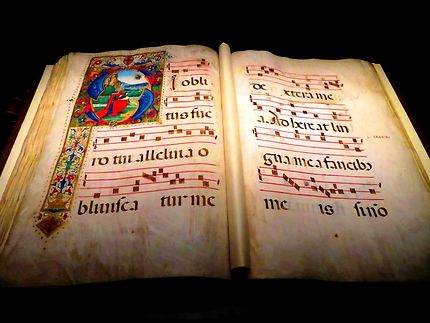 SI obli
tus fue
ro tui alleluia o
bliuisca tur me
de xtera me
a. lin
gua mea faucib
me is si no